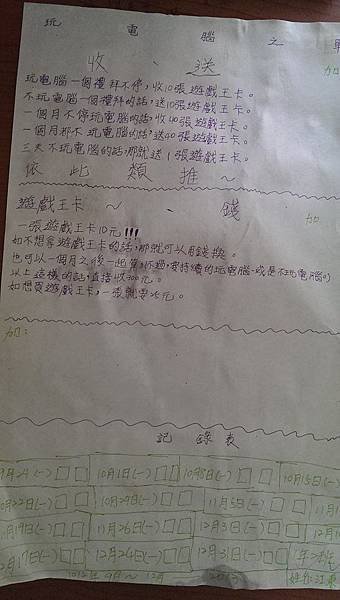 玩 電 腦 之 單
收 、 送
加
玩電腦一個禮拜不停,收10張遊戲王卡。
不玩電腦一個禮拜的話,送10張遊戲王卡。
一個月不停玩電腦的話,收40張遊戲王卡。
一個月都不玩電腦的話,送40張遊戲王卡。
三天不玩電腦的話,那就送1張遊戲王卡。
依 此 類 推 ~
遊戲王卡~、錢
加
一張遊戲王卡10元!!!
如不想拿遊戲王卡的話,那就可以用錢換。
也可以一個月之後一起算(不過,要持續的玩電腦、或是不玩電腦。)
以上這樣的話,直接收300元。
如想買遊戲王卡,一張就要25元。
加:
記 錄 表
9月24(一)□□ 10月1日(一)□□ 10月8日(一)□□ 10月15日(一)
10月22日(一)□□ 10月29日(一)□□ 11月5日(一)□□
11月19日(一)□□ 11月26日(一)□□ 12月3日(一)□□
12月17日(一)□□ 12月24日(一)□□ 12月31日(一)□□
9月~12月
姓名: